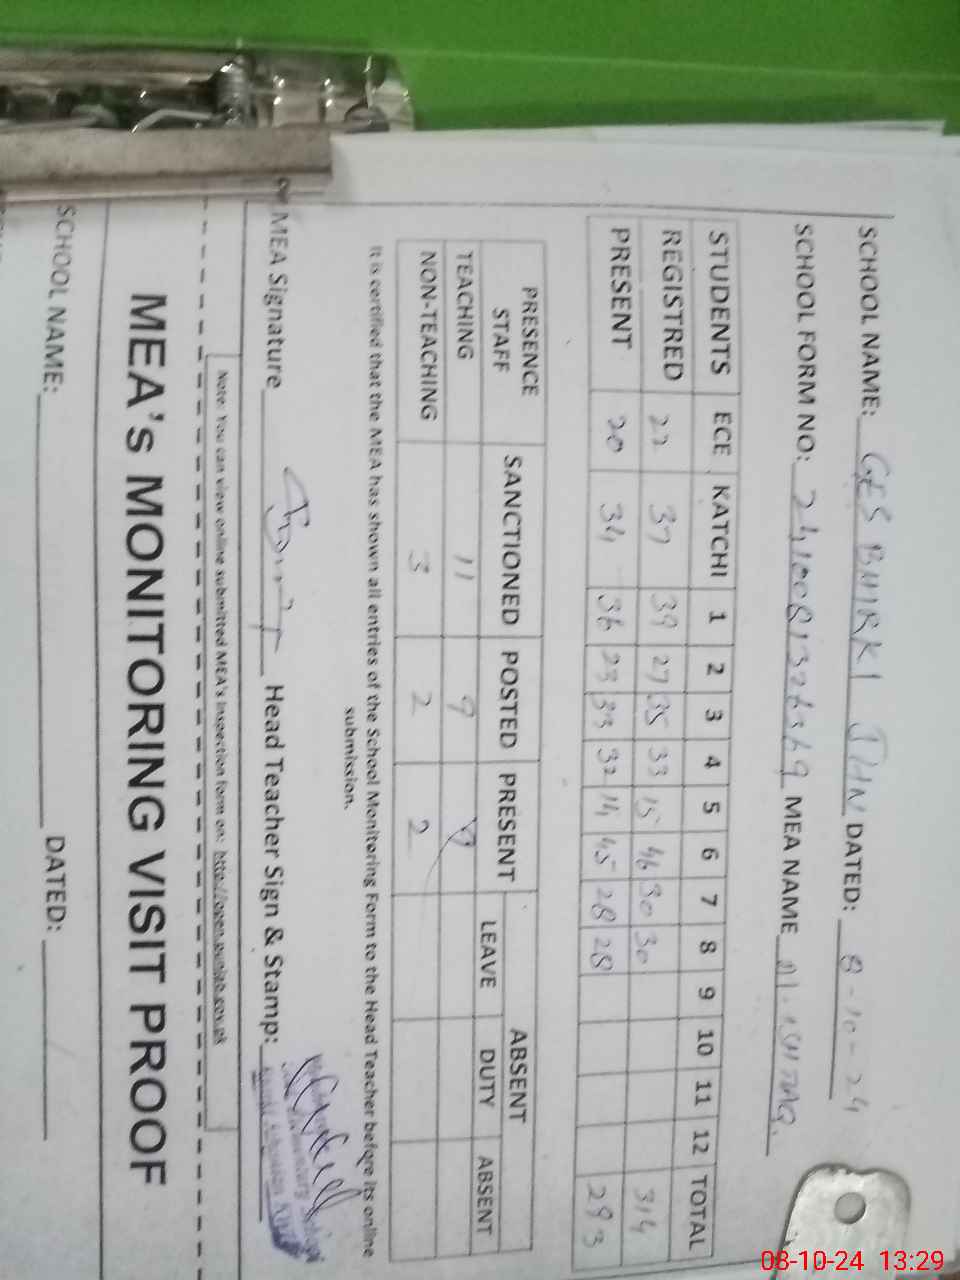 SCHOOL NAME: GES BHIRKI JHN DATED: 8-10-24
SCHOOL FORM NO: MEA NAME M. ISHTIAQ.
STUDENTS ECE KATCHI 1 2 3 4 5 6 7 8 9 10 11 12 TOTAL
REGISTRED 22 37 39 27 35 33 15 46 30 30 314
PRESENT 20 34 36 23 33 32 14 45 28 28 293
PRESENCE STAFF SANCTIONED POSTED PRESENT ABSENT
LEAVE DUTY ABSENT
TEACHING 11 9 9
NON-TEACHING 3 2 2
It is certified that the MEA has shown all entries of the School Monitoring Form to the Head Teacher before its online
submission.
MEA Signature Head Teacher Sign & Stamp:
Note: You can view online submitted MEA's inspection form on: http://open.punjab.gov.pk
MEA's MONITORING VISIT PROOF
SCHOOL NAME: DATED:
08-10-24 13:29